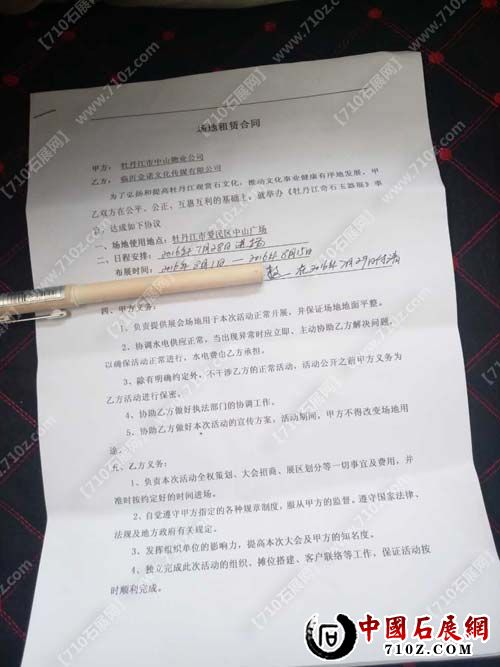 场地租赁合同
甲方： 牡丹江市中山物业公司
乙方： 临沂金诺文化传媒有限公司
为了弘扬和提高牡丹江观赏石文化，推动文化事业健康有序地发展，甲
乙双方在公平，公正，互惠互利的基础上，就举办《牡丹江奇石玉器展》事
达成如下协议
一、场地使用地点：牡丹江市爱民区中山广场
二、日程安排：2016年7月28日进场
布展时间：2016年8月1日 — 2016年8月15日
在2016年7月29日付清
四、甲方义务：
1、负责提供展会场地用于本次活动正常开展，并保证场地地面平整。
2、协调水电供应正常，当出现异常时应立即、主动协助乙方解决问题，
以确保活动正常进行，水电费由乙方承担。
3、除有明确约定外，不干涉乙方的正常活动，活动公开之前甲方义务为
乙方活动进行保密。
4、协助乙方做好执法部门的协调工作。
5、协助乙方做好本次活动的宣传方案，活动期间，甲方不得改变场地用
途。
五、乙方义务：
1、负责本次活动全权策划、大会招商、展区划分等一切事宜及费用，并
准时按约定好的时间进场。
2、自觉遵守甲方指定的各种规章制度，服从甲方的监督。遵守国家法律、
法规及地方政府有关规定。
3、发挥组织单位的影响力，提高本次大会及甲方的知名度。
4、独立完成此次活动的组织、摊位搭建、客户联络等工作，保证活动按
时顺利完成。
【710石展网】
www.710z.com
中國石展網
710Z.COM